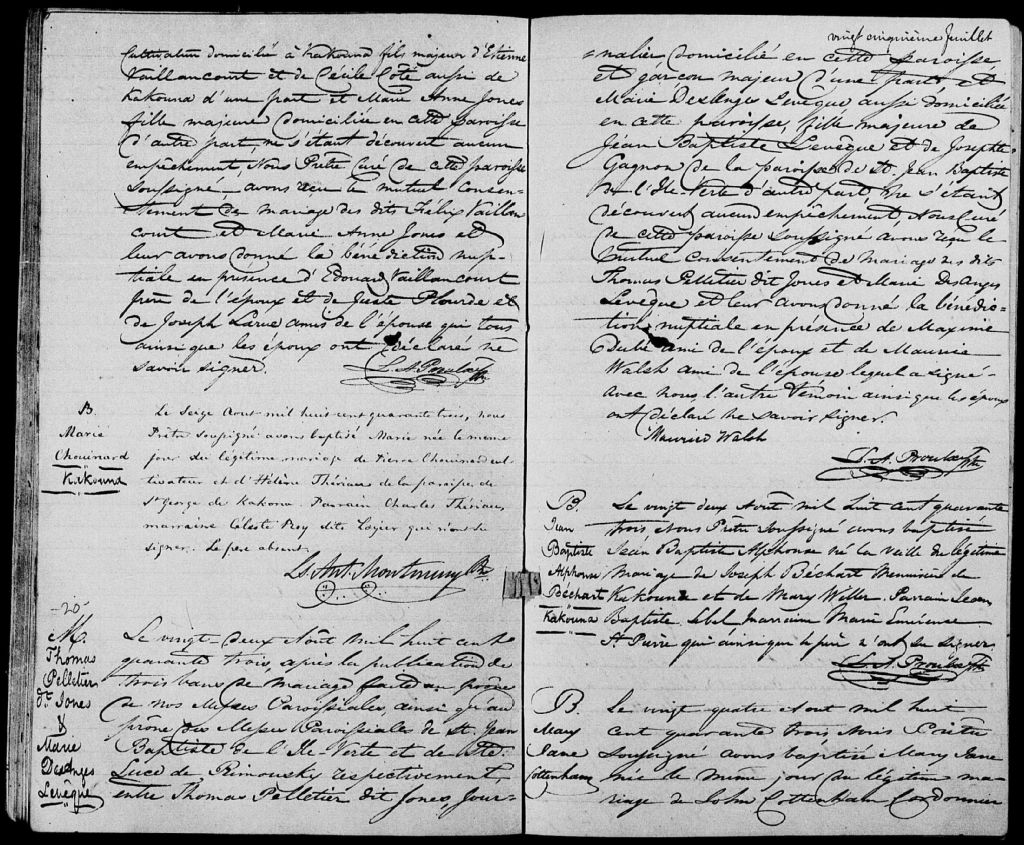 Cultivateur domicilié à Kakouna fils majeur d'Etienne
Vaillancourt et de Cécile Coté aussi de
Kakouna d'une part et Marie Anne Jones
fille majeure domiciliée en cette paroisse
d'autre part, ne s'étant découvert aucun
empêchement, Nous Prêtre Curé de cette paroisse
soussigné avons reçu le mutuel consen-
-tement de mariage des dits Félix Vaillan
court et Marie Anne Jones et
leur avons donné la bénédiction nup-
tiale en présence d'Edouard Vaillancourt
frère de l'époux et de Juste Plourde et
de Joseph Larue amis de l'épouse qui tous
ainsi que les époux ont déclaré ne
savoir signer.
L. A. Proulx Ptre
B
Marie
Chouinard
Kakouna
Le Seize Aout mil huit cent quarante trois, nous
Prêtre soussigné avons baptisé Marie née le meme
jour du légitime mariage de Pierre Chouinard cul-
tivateur et d'Hélène Thériau de la paroisse de
St George de Kakona. Parrain Charles Thériau,
marraine Céleste Roy dite Lozier qui n'ont su
signer. Le père absent.
Ls. Ant. Montminy Ptre
-20-
M.
Thomas
Pelletier
dt. Jones
&
Marie
Desanges
Leveque
Le vingt deux Aout mil huit cent
quarante trois, après la publication de
trois bans de mariage faite au prône
de nos Messes Paroissiales, ainsi qu'au
prône des Messes Paroissiales de St. Jean
Baptiste de l'Ile Verte et de Ste.
Luce de Rimousky respectivement,
entre Thomas Pelletier dit Jones, Jour-
vingt cinquième feuillet
=nalier domicilié en cette Paroisse
et garçon majeur d'une part et
Marie Desanges Levêque aussi domiciliée
en cette paroisse, fille majeure de
Jean Baptiste Levêque et de Josephte
Gagnon de la paroisse de St. Jean Baptiste
de l'Ile Verte d'autre part, ne s'étant
découvert aucun empêchement Nous Curé
de cette paroisse soussigné avons reçu le
mutuel consentement de mariage des dits
Thomas Pelletier dit Jones et Marie Desanges
Levêque et leur avons donné la bénédic=
tion nuptiale en présence de Maxime
Dubé ami de l'époux et de Maurice
Walsh ami de l'épouse lequel a signé
avec nous, l'autre témoin ainsi que les époux
ont déclaré ne savoir signer.
Maurice Walsh
L. A. Proulx Ptre
B.
Jean
Baptiste
Alphonse
Béchart
Kakouna
Le vingt deux Aout mil huit cent quarante
trois Nous Prêtre soussigné avons baptisé
Jean Baptiste Alphonse né la veille du légitime
mariage de Joseph Béchart Menuisier de
Kakouna et de Mary Willer. Parrain Jean
Baptiste Lebel Marraine Marie
St Pierre qui ainsi que le père n'ont su signer
L. A. Proulx Ptre
B.
Mary
Jane
Cottenham
Le vingt quatre Aout mil huit
cent quarante trois Nous Prêtre
soussigné avons baptisé Mary Jane
née le même jour du légitime ma-
riage de John Cottenham Cordonnier